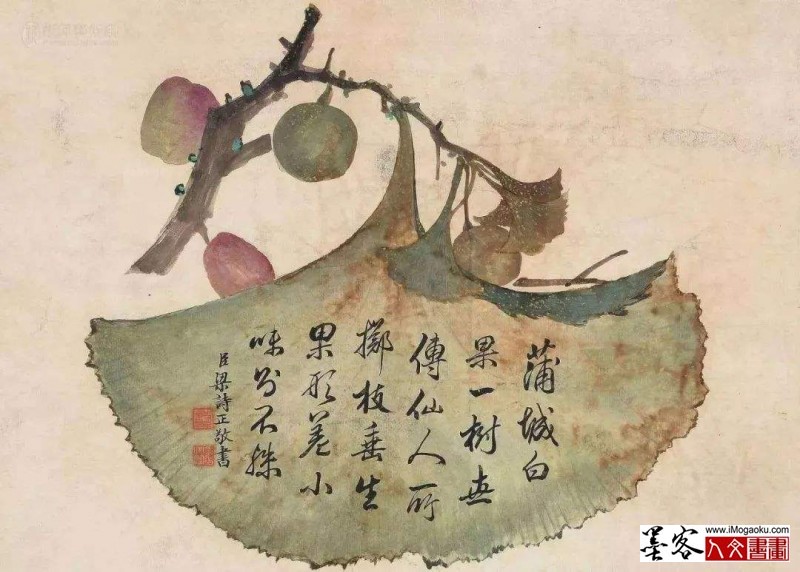 蒲城白
果一樹世
傳仙人所
擲枝垂生
果形差小
味不殊
臣梁詩正敬書
www.iMogaoku.com
墨客人文書畫